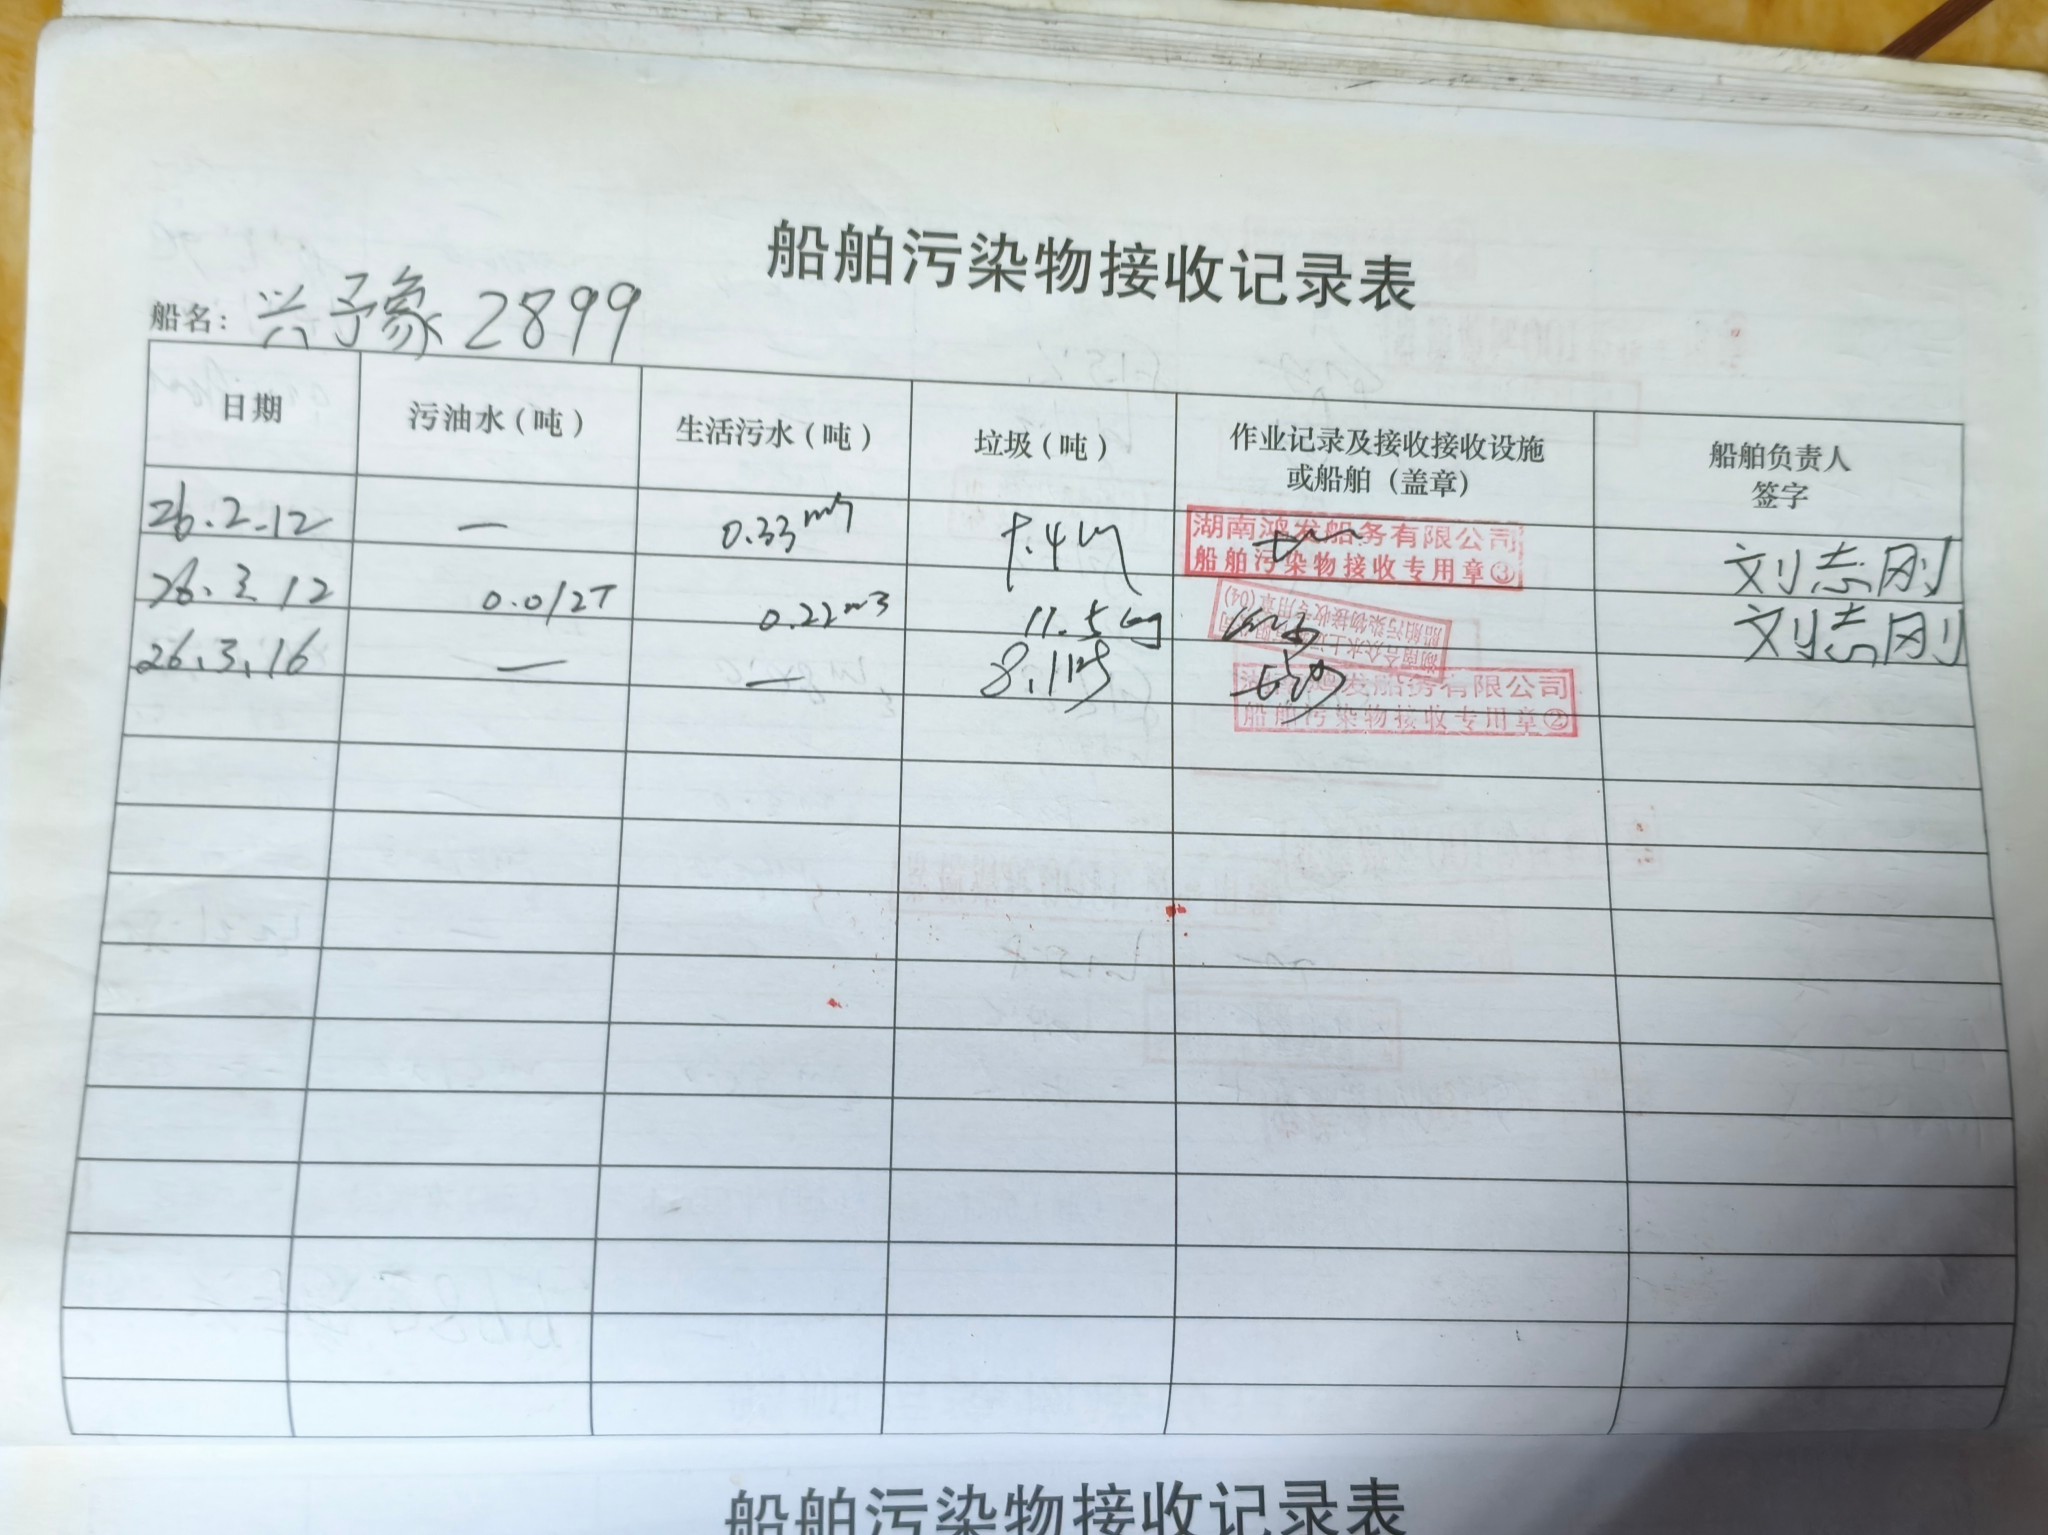 船舶污染物接收记录表
船名: 兴豫 2899
日期 污油水(吨) 生活污水(吨) 垃圾(吨) 作业记录及接收接收设施或船舶(盖章) 船舶负责人签字
26.2.12 — 0.33m³ 9.4kg 湖南鸿发船务有限公司 船舶污染物接收专用章③ 刘志刚
26.3.12 0.012T 0.22m3 11.5kg 船舶污染物接收专用章(04) 刘志刚
26.3.16 — — 8.1kg 长沙 湖南鸿发船务有限公司 船舶污染物接收专用章②
船舶污染物接收记录表